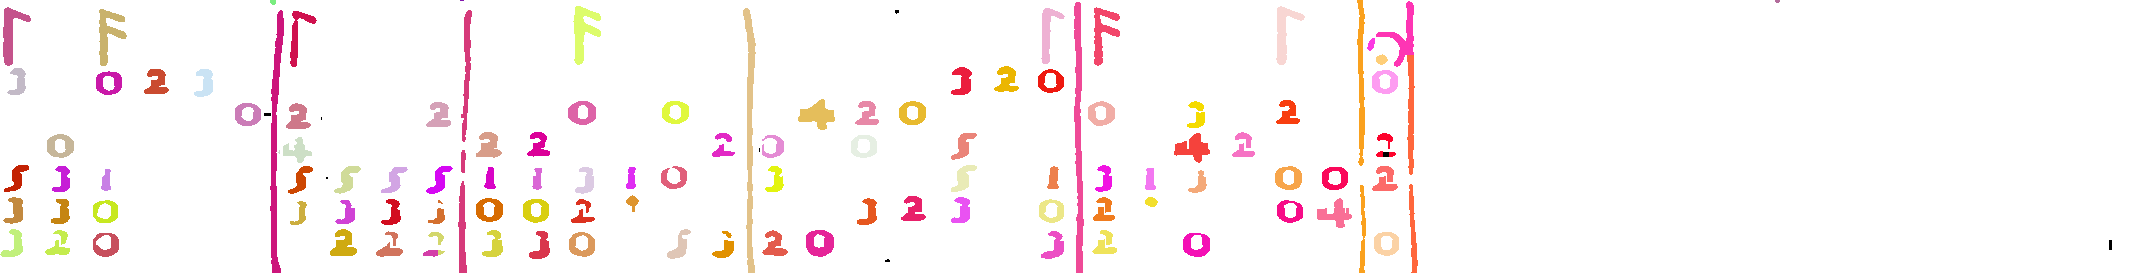 3 0 2 3 3 2 0 0
0 2 2 0 0 4 2 0 0 3 2
0 4 2 2 2 0 0 5 4 2 2
5 3 1 5 5 5 5 1 1 3 1 0 3 5 1 3 1 3 0 0 2
3 3 0 3 3 3 3 0 0 2 3 2 3 0 2 0 4
3 2 0 2 2 2 3 3 0 5 3 2 0 3 2 0 0